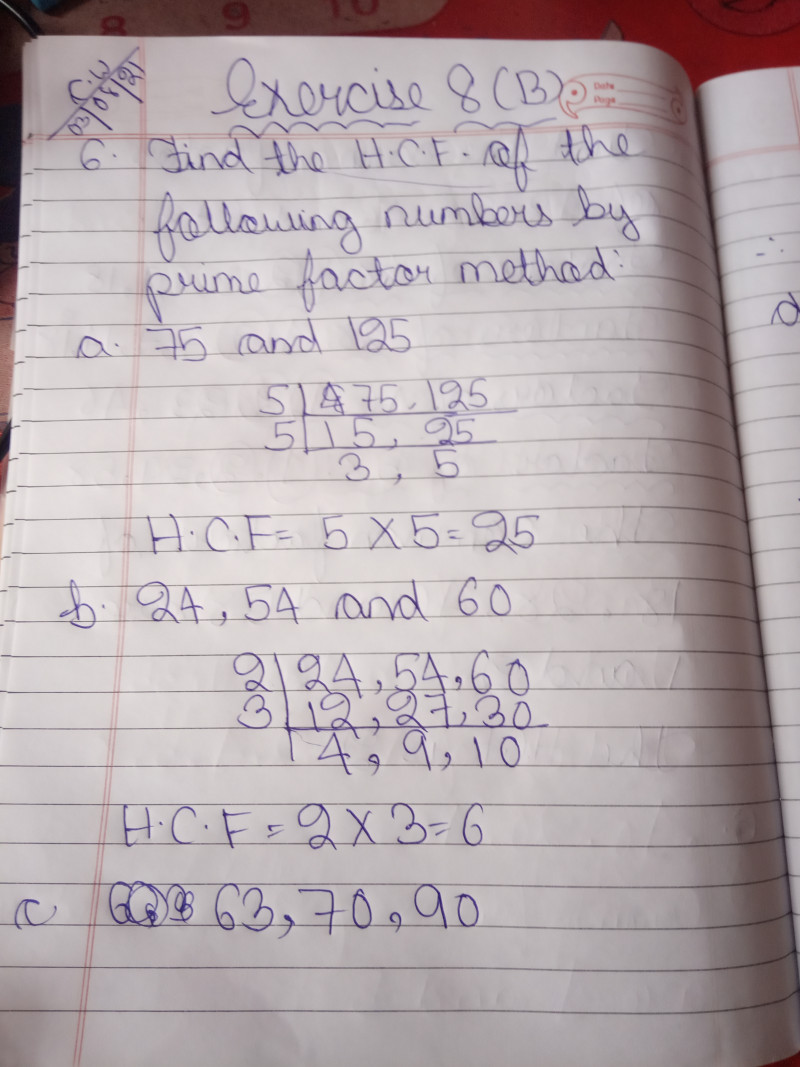 8 9 10
C.W
03/05/21
Exercise 8 (B)
Date
Page
6. Find the H.C.F. of the
following numbers by
prime factor method:
a. 75 and 125
5 | 75, 125
5 | 15, 25
3, 5
H.C.F = 5 X 5 = 25
b. 24, 54 and 60
2 | 24, 54, 60
3 | 12, 27, 30
| 4, 9, 10
H.C.F = 2 X 3 = 6
c 63, 70, 90
∴
d